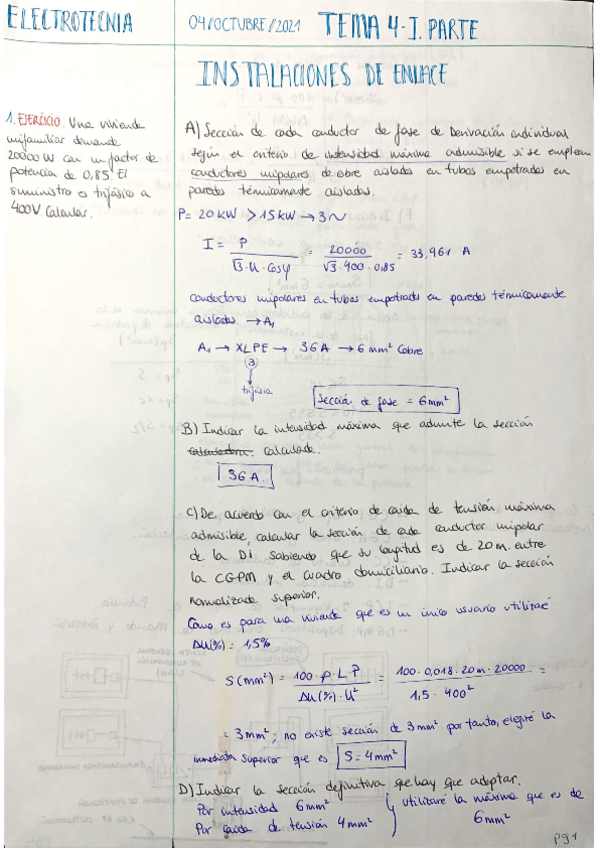 ELECTROTECNIA
04/OCTUBRE/2021
TEMA 4-I. PARTE
INSTALACIONES DE ENLACE
1. EJERCICIO. Una vivienda
unifamiliar demanda
20000 W con un factor de
potencia de 0,85. El
suministro es trifásico a
400V. Calcular.
A) Sección de cada conductor de fase de derivación individual
según el criterio de intensidad máxima admisible si se emplean
conductores unipolares de cobre aislados en tubos empotrados en
paredes térmicamente aislados.
P= 20 KW > 15 KW → 3∼
I = P / √3·U·Cosφ = 20000 / √3·400·0,85 = 33,961 A
conductores unipolares en tubos empotrados en paredes térmicamente
aislados. → A1
A1 → XLPE → 36A → 6 mm² Cobre.
3
trifásica
Sección de fase = 6mm²
B) Indicar la intensidad máxima que admite la sección
calculadora. calculada.
36A.
C) De acuerdo con el criterio de caída de tensión máxima
admisible, calcular la sección de cada conductor unipolar
de la DI. Sabiendo que su longitud es de 20m. entre
la CGPM y el cuadro domiciliario. Indicar la sección
normalizada superior.
Como es para una vivienda que es un único usuario utilizaré
ΔU(%) = 1,5%
S(mm²) = 100·ρ·L·P / ΔU(%)·U² = 100·0,018·20m·20000 / 1,5·400² =
= 3mm²; no existe sección de 3mm² por tanto, elegiré la
inmediata superior que es S=4mm²
D) Indicar la sección definitiva que hay que adoptar.
Por intensidad 6mm² } utilizaré la máxima que es de
Por caída de tensión 4mm² 6mm²
Pg 1